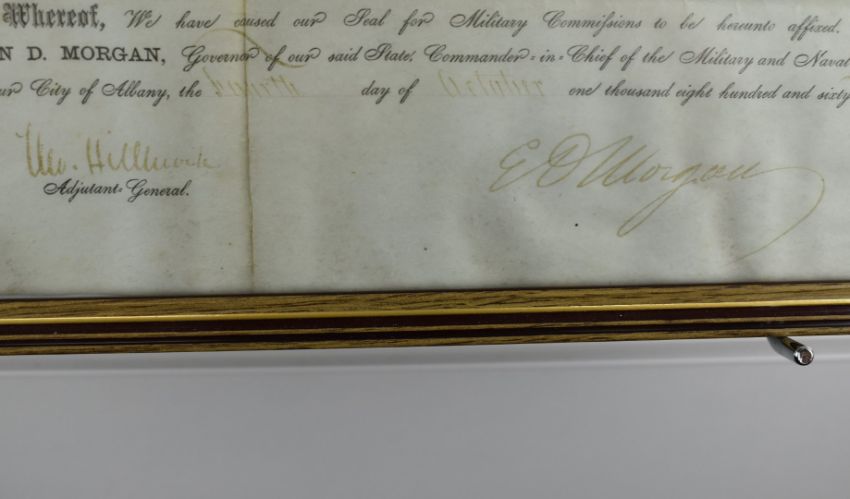 Whereof, We have caused our Seal for Military Commissions to be hereunto affixed.
N D. MORGAN, Governor of our said State, Commander-in-Chief of the Military and Naval
ur City of Albany, the Fourth day of October one thousand eight hundred and sixty
Tho. Hillhouse
E D Morgan
Adjutant-General.